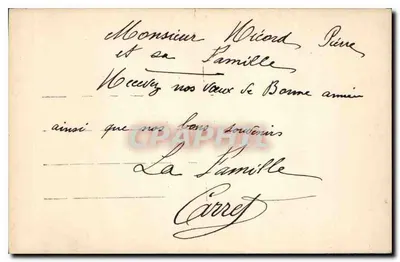 Monsieur Nicord, Pierre
et sa Famille
Recevez nos vœux de Bonne année
ainsi que nos bons souvenirs
La Famille
Carret